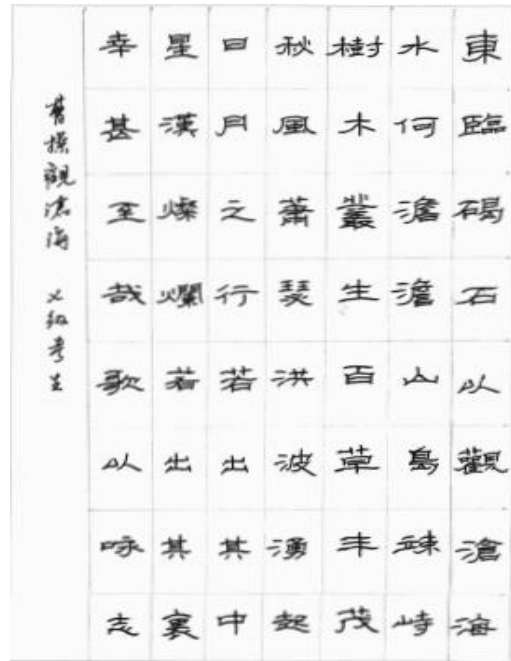 東臨碣石以觀滄海
水何澹澹山島竦峙
樹木叢生百草丰茂
秋風蕭瑟洪波湧起
日月之行若出其中
星漢燦爛若出其裏
幸甚至哉歌以咏志
曹操觀滄海 级考生